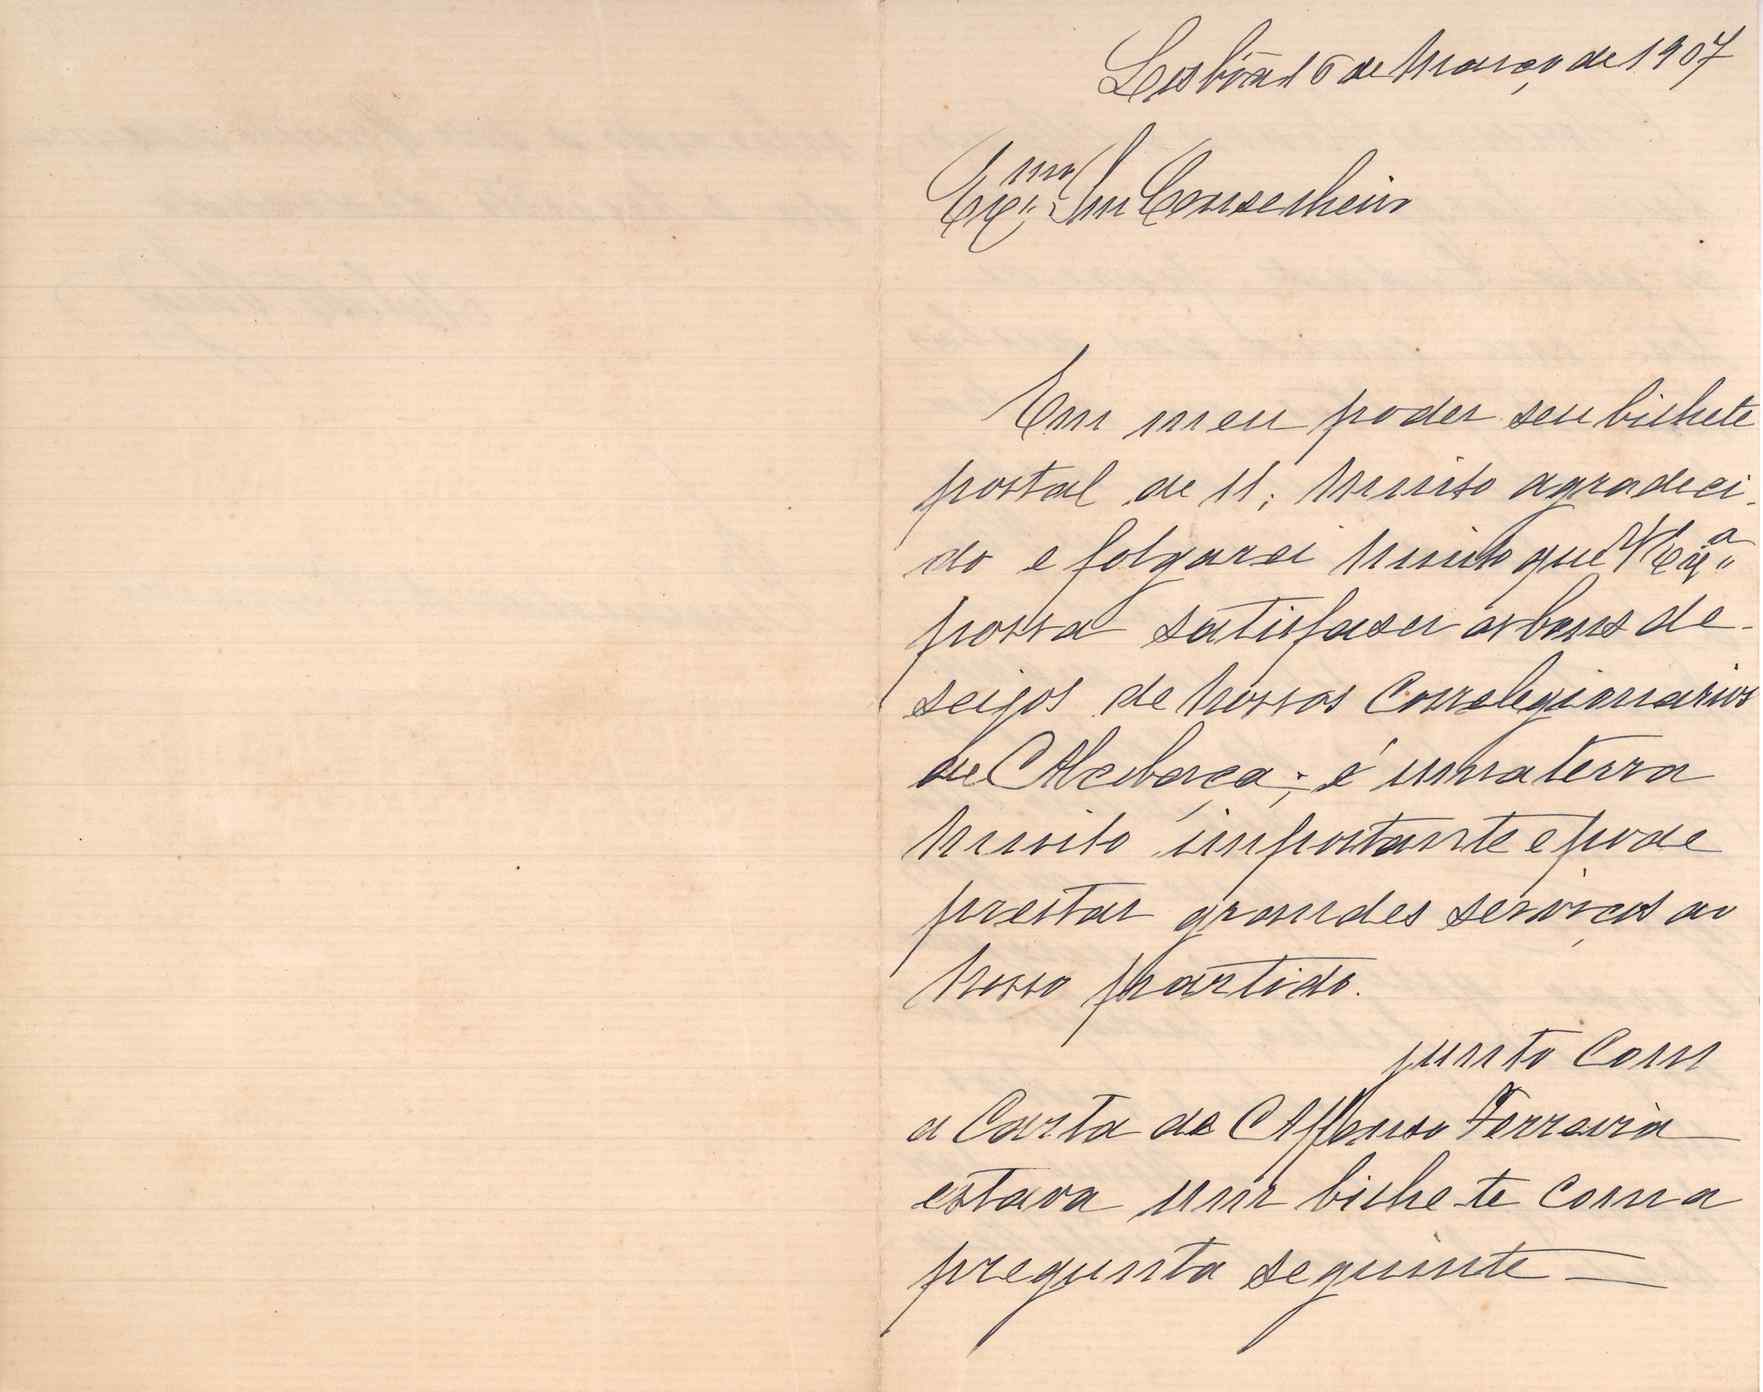 Lisbôa 16 de Março de 1907
Exmo Snr Conselheiro
Em meu poder seu bilhete
postal de 11; Muito agradeci-
do e folgarei Muito que V Exa
possa satisfaser os bons de-
seijos de Nossos Correlegionarios
de Alcobaça; é uma terra
Muito importante e pode
prestar grandes serviços ao
Nosso partido.
junto Com
a Carta de Affonso Ferreira
estava um bilhete com a
pregunta seguinte —